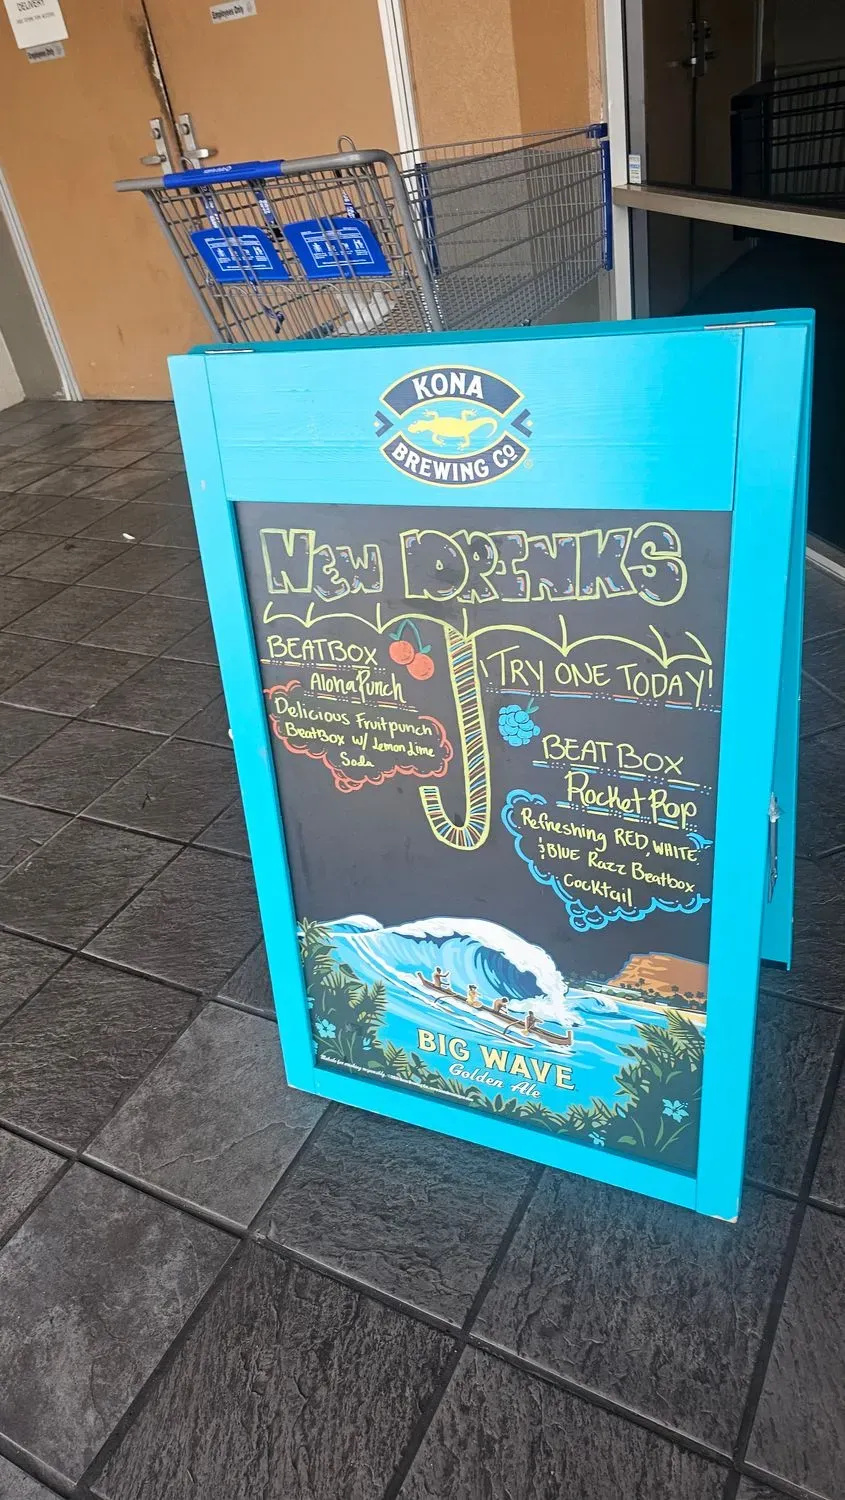 DELIVERY
Employees Only
Employees Only
KONA
BREWING Co
NEW DRINKS
BEATBOX
Aloha Punch
Delicious Fruitpunch
BeatBox w/ Lemon Lime
Soda
TRY ONE TODAY!
BEATBOX
Rocket Pop
Refreshing RED, WHITE
& BLUE Razz Beatbox
Cocktail
BIG WAVE
Golden Ale